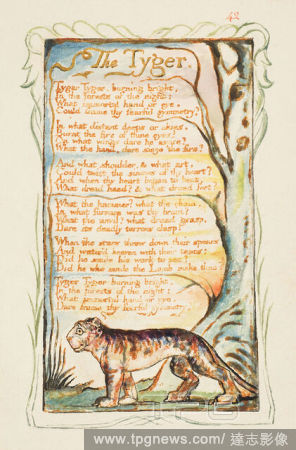 42
The Tyger.
Tyger Tyger, burning bright,
In the forests of the night:
What immortal hand or eye,
Could frame thy fearful symmetry?
In what distant deeps or skies,
Burnt the fire of thine eyes?
On what wings dare he aspire?
What the hand, dare sieze the fire?
And what shoulder, & what art,
Could twist the sinews of thy heart?
And when thy heart began to beat,
What dread hand? & what dread feet?
What the hammer? what the chain,
In what furnace was thy brain?
What the anvil? what dread grasp,
Dare its deadly terrors clasp?
When the stars threw down their spears
And water'd heaven with their tears:
Did he smile his work to see?
Did he who made the Lamb make thee?
Tyger Tyger burning bright,
In the forests of the night:
What immortal hand or eye,
Dare frame thy fearful symmetry?
TPG
www.tpgnews.com / 達志影像